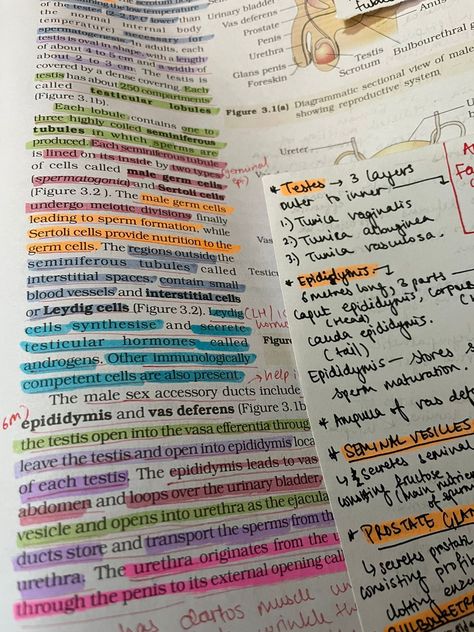 of the testes (2–2.5°C lower than
the normal internal body
temperature) necessary for
spermatogenesis. In adults, each
testis is oval in shape, with a length
of about 4 to 5 cm and a width of
about 2 to 3 cm. The testis is
covered by a dense covering. Each
testis has about 250 compartments
called testicular lobules
(Figure 3.1b).
Each lobule contains one to
three highly coiled seminiferous
tubules in which sperms are
produced. Each seminiferous tubule
is lined on its inside by two types
of cells called male germ cells
(spermatogonia) and Sertoli cells
(Figure 3.2). The male germ cells
undergo meiotic divisions finally
leading to sperm formation, while
Sertoli cells provide nutrition to the
germ cells. The regions outside the
seminiferous tubules called
interstitial spaces, contain small
blood vessels and interstitial cells
or Leydig cells (Figure 3.2). Leydig
cells synthesise and secrete
testicular hormones called
androgens. Other immunologically
competent cells are also present.
The male sex accessory ducts include
epididymis and vas deferens (Figure 3.1b
the testis open into the vasa efferentia throug
leave the testis and open into epididymis loca
of each testis. The epididymis leads to vas
abdomen and loops over the urinary bladder.
vesicle and opens into urethra as the ejacula
ducts store and transport the sperms from the
urethra. The urethra originates from the u
through the penis to its external opening call
germinal
(LH)
→ help i
6m)
has dartos muscle
wrinkle
Urinary bladder
Vas deferens
Prostate
Penis
Urethra
Glans penis
Foreskin
Testis
Scrotum
Anus
Bulbourethral g
Figure 3.1(a) Diagrammatic sectional view of mal
showing reproductive system
Ureter
Vas
Testic
Figu
* Testes → 3 layers
outer to inner
1) Tunica vaginalis
2) Tunica albuginea
3) Tunica vasculosa.
* Epididymis -
6 metres long, 3 parts —
caput epididymis, corpus
(Head)
cauda epididymis.
(tail)
Epididymis — stores s
sperm maturation.
* Ampulla of vas def
* SEMINAL VESICLES
↳ secretes seminal
consisting fructose
(main nutrien
of sperm
* PROSTATE GLAN
↳ secretes prostati
consisting
clotting enz